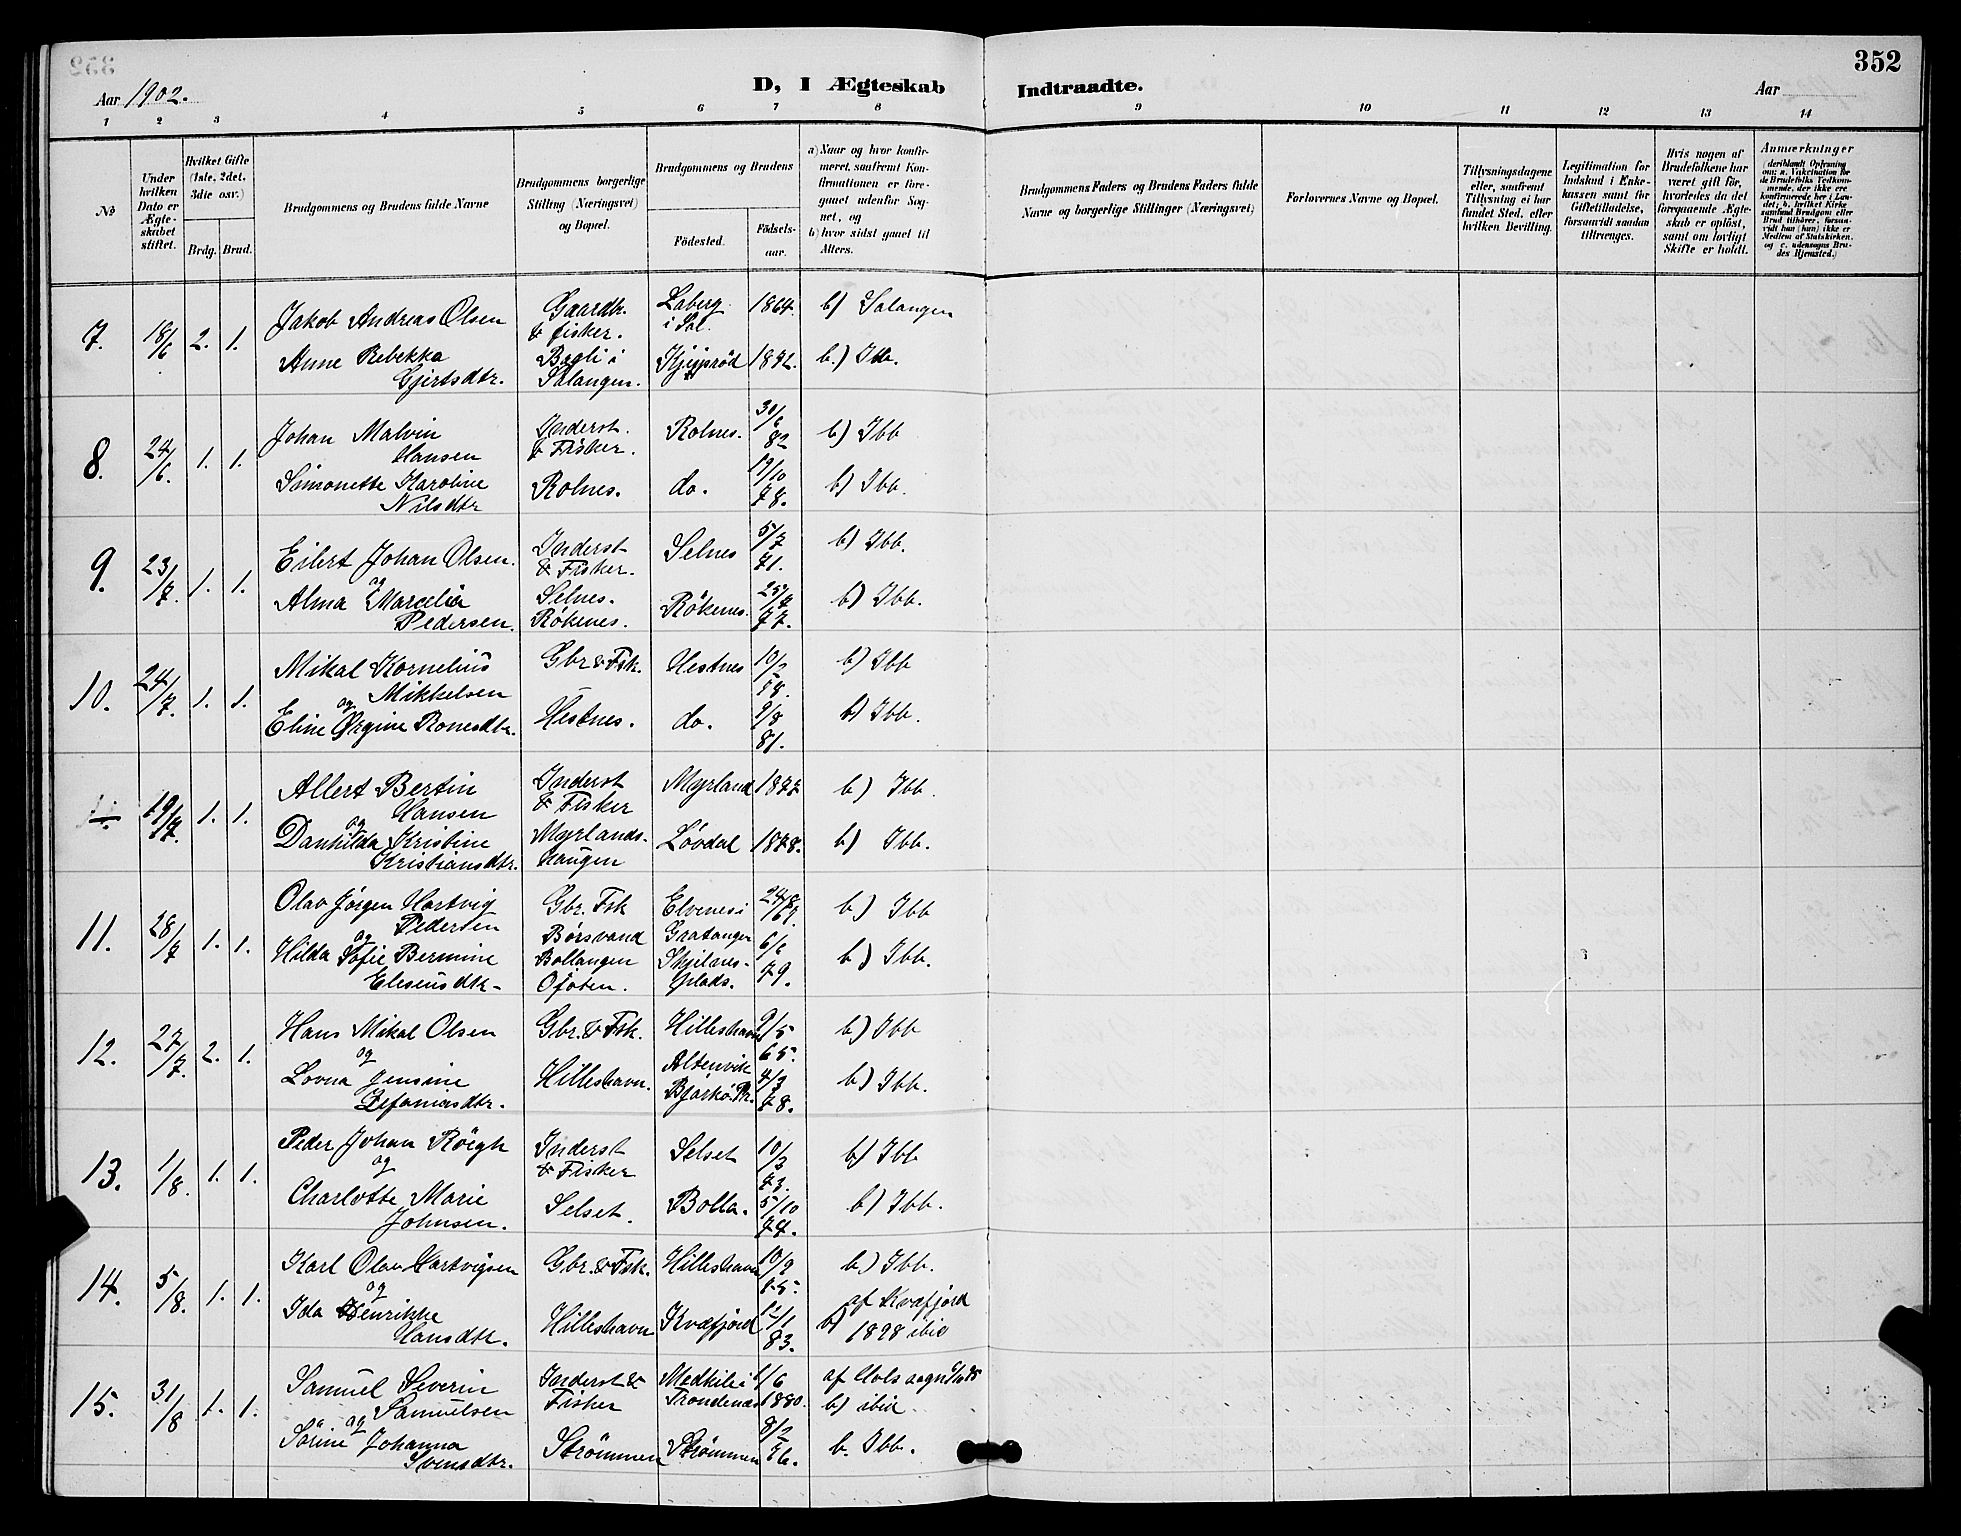 352
Aar 1902.
D, I Ægteskab Indtraadte.
Aar
1 2 3 4 5 6 7 8 9 10 11 12 13 14
No
Under hvilken Dato er Ægteskabet stiftet.
Hvilket Gifte (1ste, 2det, 3die osv.)
Brdg. Brud.
Brudgommens og Brudens fulde Navne
Brudgommens borgerlige Stilling (Næringsvei) og Bopæl.
Brudgommens og Brudens
Fødested.
Fødselsaar.
a) Naar og hvor konfirmeret, samfremt Konfirmationen er foregaaet udenfor Sognet, og
b) hvor sidst gaaet til Alters.
Brudgommens Faders og Brudens Faders fulde Navne og borgerlige Stillinger (Næringsvei)
Forlovernes Navne og Bopæl.
Tillysningsdagene eller, samfremt Tillysning ei har fundet Sted, efter hvilken Bevilling.
Legitimation for Indskud i Enkekassen samt for Giftetilladelse, forsaavidt saadan tiltrænges.
Hvis nogen af Brudefolkene har været gift før, hvorledes da det foregaaende Ægteskab er opløst, samt om lovligt Skifte er holdt.
Anmærkninger
(deriblandt Oplysning om: a. Vakcination for de Brudefolks Vedkommende, der ikke ere konfirmerede her i Landet; b. hvilket Kirkesamfund Brudgom eller Brud tilhører, forsaavidt han (hun) ikke er Medlem af Statskirken, og c. udensogns Brudes Hjemsted.)
7. 18/6 2. 1. Jakob Andreas Olsen Gaardbr. & fisker. Laberg i Sal. 1864. b) Salangen
Anne Rebekka Gjertsdtr. Salangen. b.) Ibb.
8. 24/6. 1. 1. Johan Malvin Hansen Inderst. & Fisker. Rolnes. 30/6 82 b) Ibb
Simonette Karoline Nilsdtr Rolnes. do. 19/10 78. b) Ibb.
9. 23/7. 1. 1. Eilert Johan Olsen. Inderst & Fisker. Selnes 5/7 71. b) Ibb.
og
Alma Marcelia Pedersen. Selnes. Rökenes. Rökenes. 25/7 77. b) Ibb.
10. 24/7. 1. 1. Mikal Kornelius Mikkelsen Gbr & Fsk. Hestnes b) Ibb
og
Eline Ørgine Ronesdtr. Hestnes. do. 9/8 81. b) Ibb.
11. 19/7. 1. 1. Albert Bertin Hansen Inderst & Fisker Myrland 1877 b) Ibb.
og
Danhilda Kristine Kristiansdtr. Myrlandshaugen Lövdal 1878. b) Ibb.
11. 28/7 1. 1. Olav Jörgen Hartvig Pedersen Gbr. Fsk Elvenes i Gratangen b) Ibb
og
Hilda Sofie Bermine Eleseusdtr Börsvand Bollangen Ofoten. Skjelnes-Plads. 6/6 79. b) Ibb.
12. 27/7. 2. 1. Hans Mikal Olsen Gbr. & Fsk. Hilleshavn 9/5 65. b) Ibb
og
Lovna Jensine Zefaniasdtr. Hilleshavn. Altenvik Bjarkö Pr. 4/3 78. b) Ibb.
13. 1/8. 1. 1. Peder Johan Röegh Inderst & Fisker Selset 10/3 73. b) Ibb
og
Charlotte Marie Johnsen. Selset. Bolla. 5/10 74. b) Ibb.
14. 5/8. 1. 1. Karl Olav Hartvigsen Gbr. & Fsk. Hilleshavn 10/9 75. b) Ibb.
og
Ida Henrikke Hansdtr. Hilleshavn Kvæfjord 12/1 83. af Kvæfjord b) 1898 ibid
15. 31/8 1. 1. Samuel Severin Samuelsen Inderst & Fisker Medkile i Trondenæs 1/6 1880. b) ibid.
og
Sörine Johanna Svensdtr. Strömmen Strömmen 8/2 76. b. Ibb.